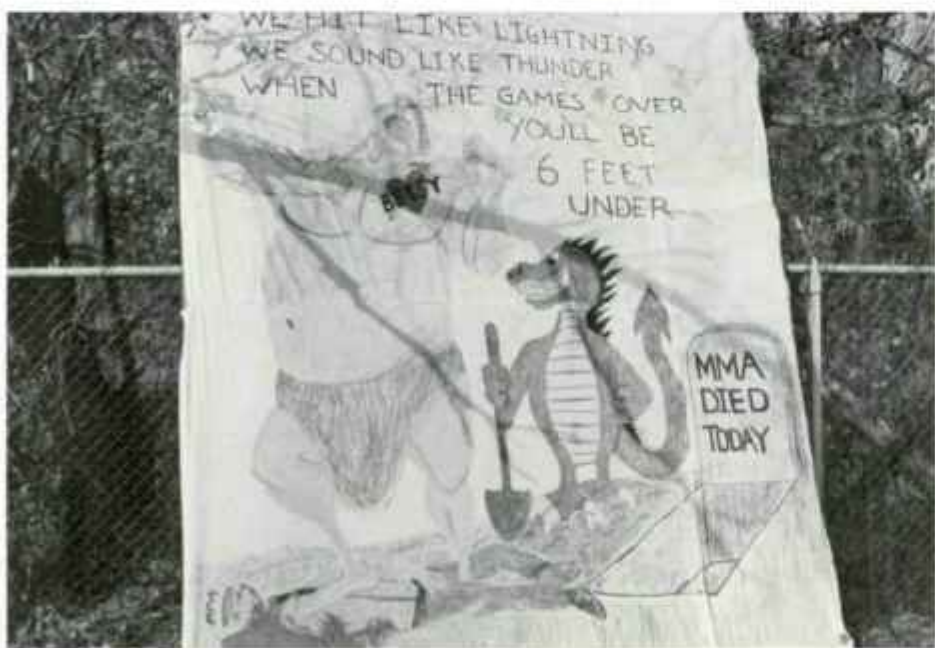 WE HIT LIKE LIGHTNING
WE SOUND LIKE THUNDER
WHEN THE GAMES OVER
YOU'LL BE
6 FEET
UNDER
MMA
DIED
TODAY